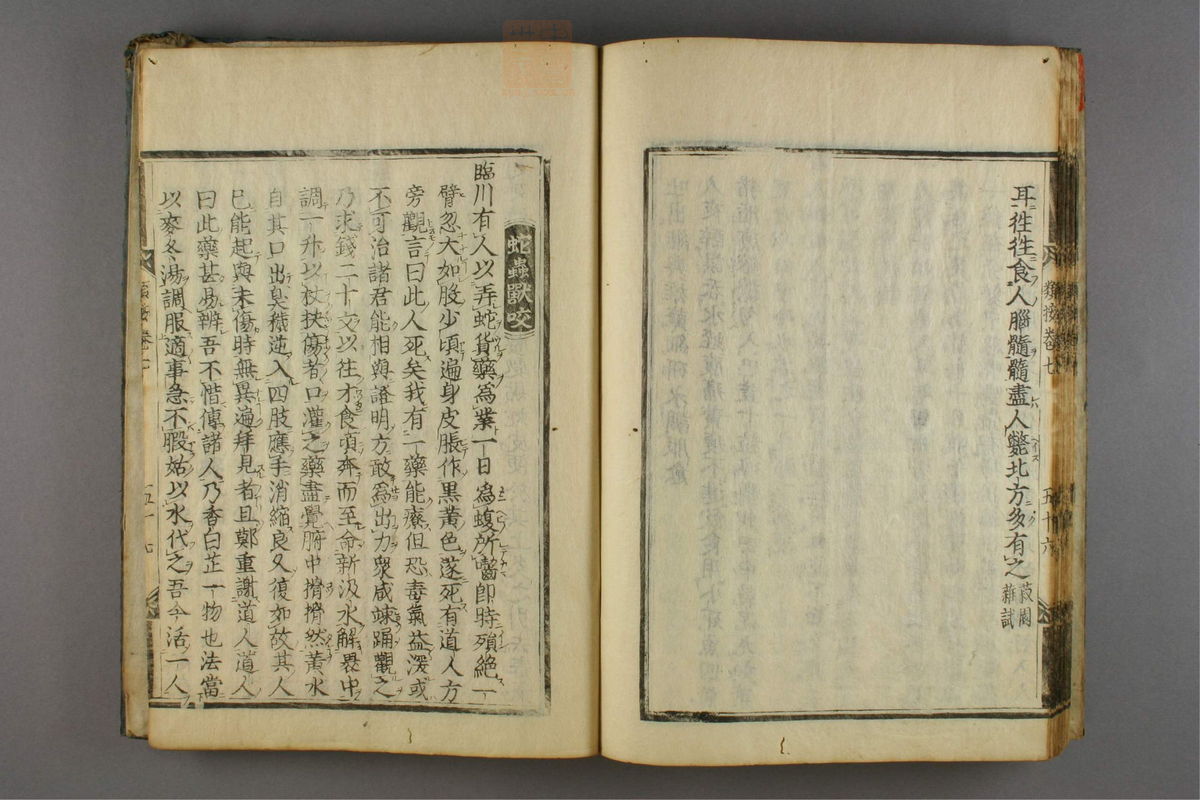 耳徃徃食人腦髓髓盡人斃北方多有之 菽園
雜試
類按卷七
五十六
蛇蟲獸咬
臨川有人以弄蛇貨藥爲業一日爲蝮所嚙即時殞絶一
臂忽大如股少頃遍身皮脹作黑黄色遂死有道人方
旁觀言曰此人死矣我有一藥能療但恐毒氣益深或
不可治諸君能相與證明方敢爲出力衆咸竦踊觀之
乃求錢二十文以徃才食頃奔而至命新汲水解裹中
調一升以杖抉傷者口灌之藥盡覺腑中搰搰然黄水
自其口出臭穢逆入四肢應手消縮良久復如故其人
已能起與未傷時無異遍拜見者且鄭重謝道人道人
曰此藥甚易辨吾不惜傳諸人乃香白芷一物也法當
以麥冬湯調服適事急不暇姑以水代之吾今活一人